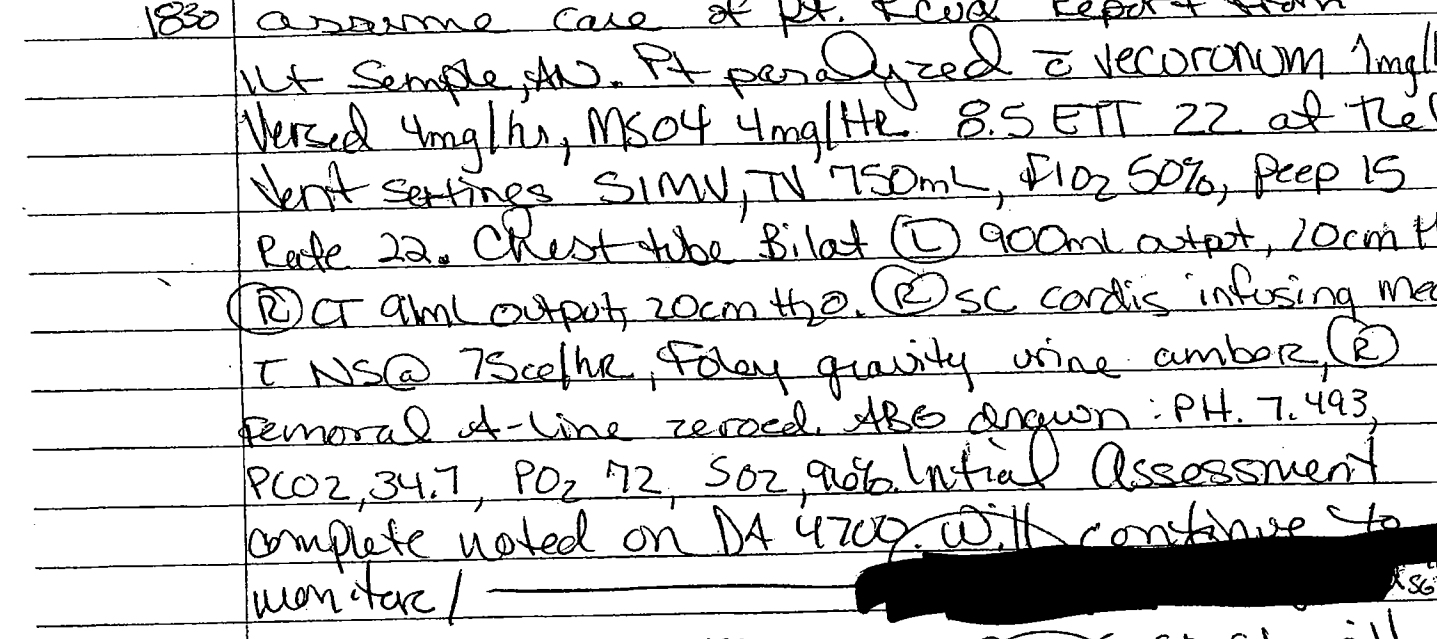 1830 assume care of pt. Rcvd report from
1Lt Semple, AN. Pt paralyzed c̄ vecoronum 1mg/h
Versed 4mg/hr, MSO4 4mg/HR 8.5 ETT 22 at the
Vent settings SIMV, TV 750mL, FIO2 50%, Peep 15
Rate 22. Chest tube Bilat Ⓛ 900mL outpt, 20cm H
Ⓡ CT 91mL output, 20cm H2O. Ⓡ SC cordis infusing me
c̄ NS@ 75cc/hR, Foley gravity urine amber, Ⓡ
femoral A-line zeroed. ABG drawn: PH. 7.493,
PCO2, 34.7, PO2 72, SO2, 96%. Intial Assessment
complete noted on DA 4700. Will continue to
monitor/
will